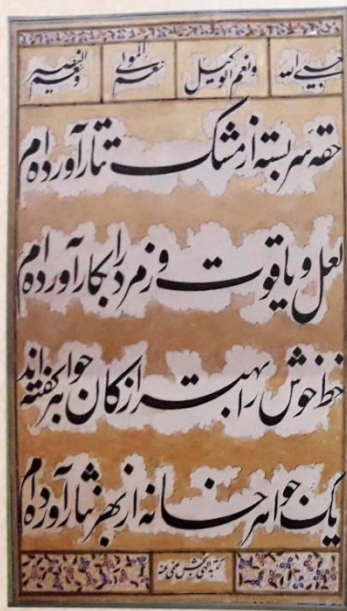 حسبی الله ونعم الوکیل نعم المولی ونعم النصیر
حقه سربسته از مشک تتار آورده ام
لعل و یاقوت و زمرد را بکار آورده ام
خط خوش را بهتر از کان جواهر گفته اند
یک جواهر خانه از بهر نثار آورده ام
کتبه